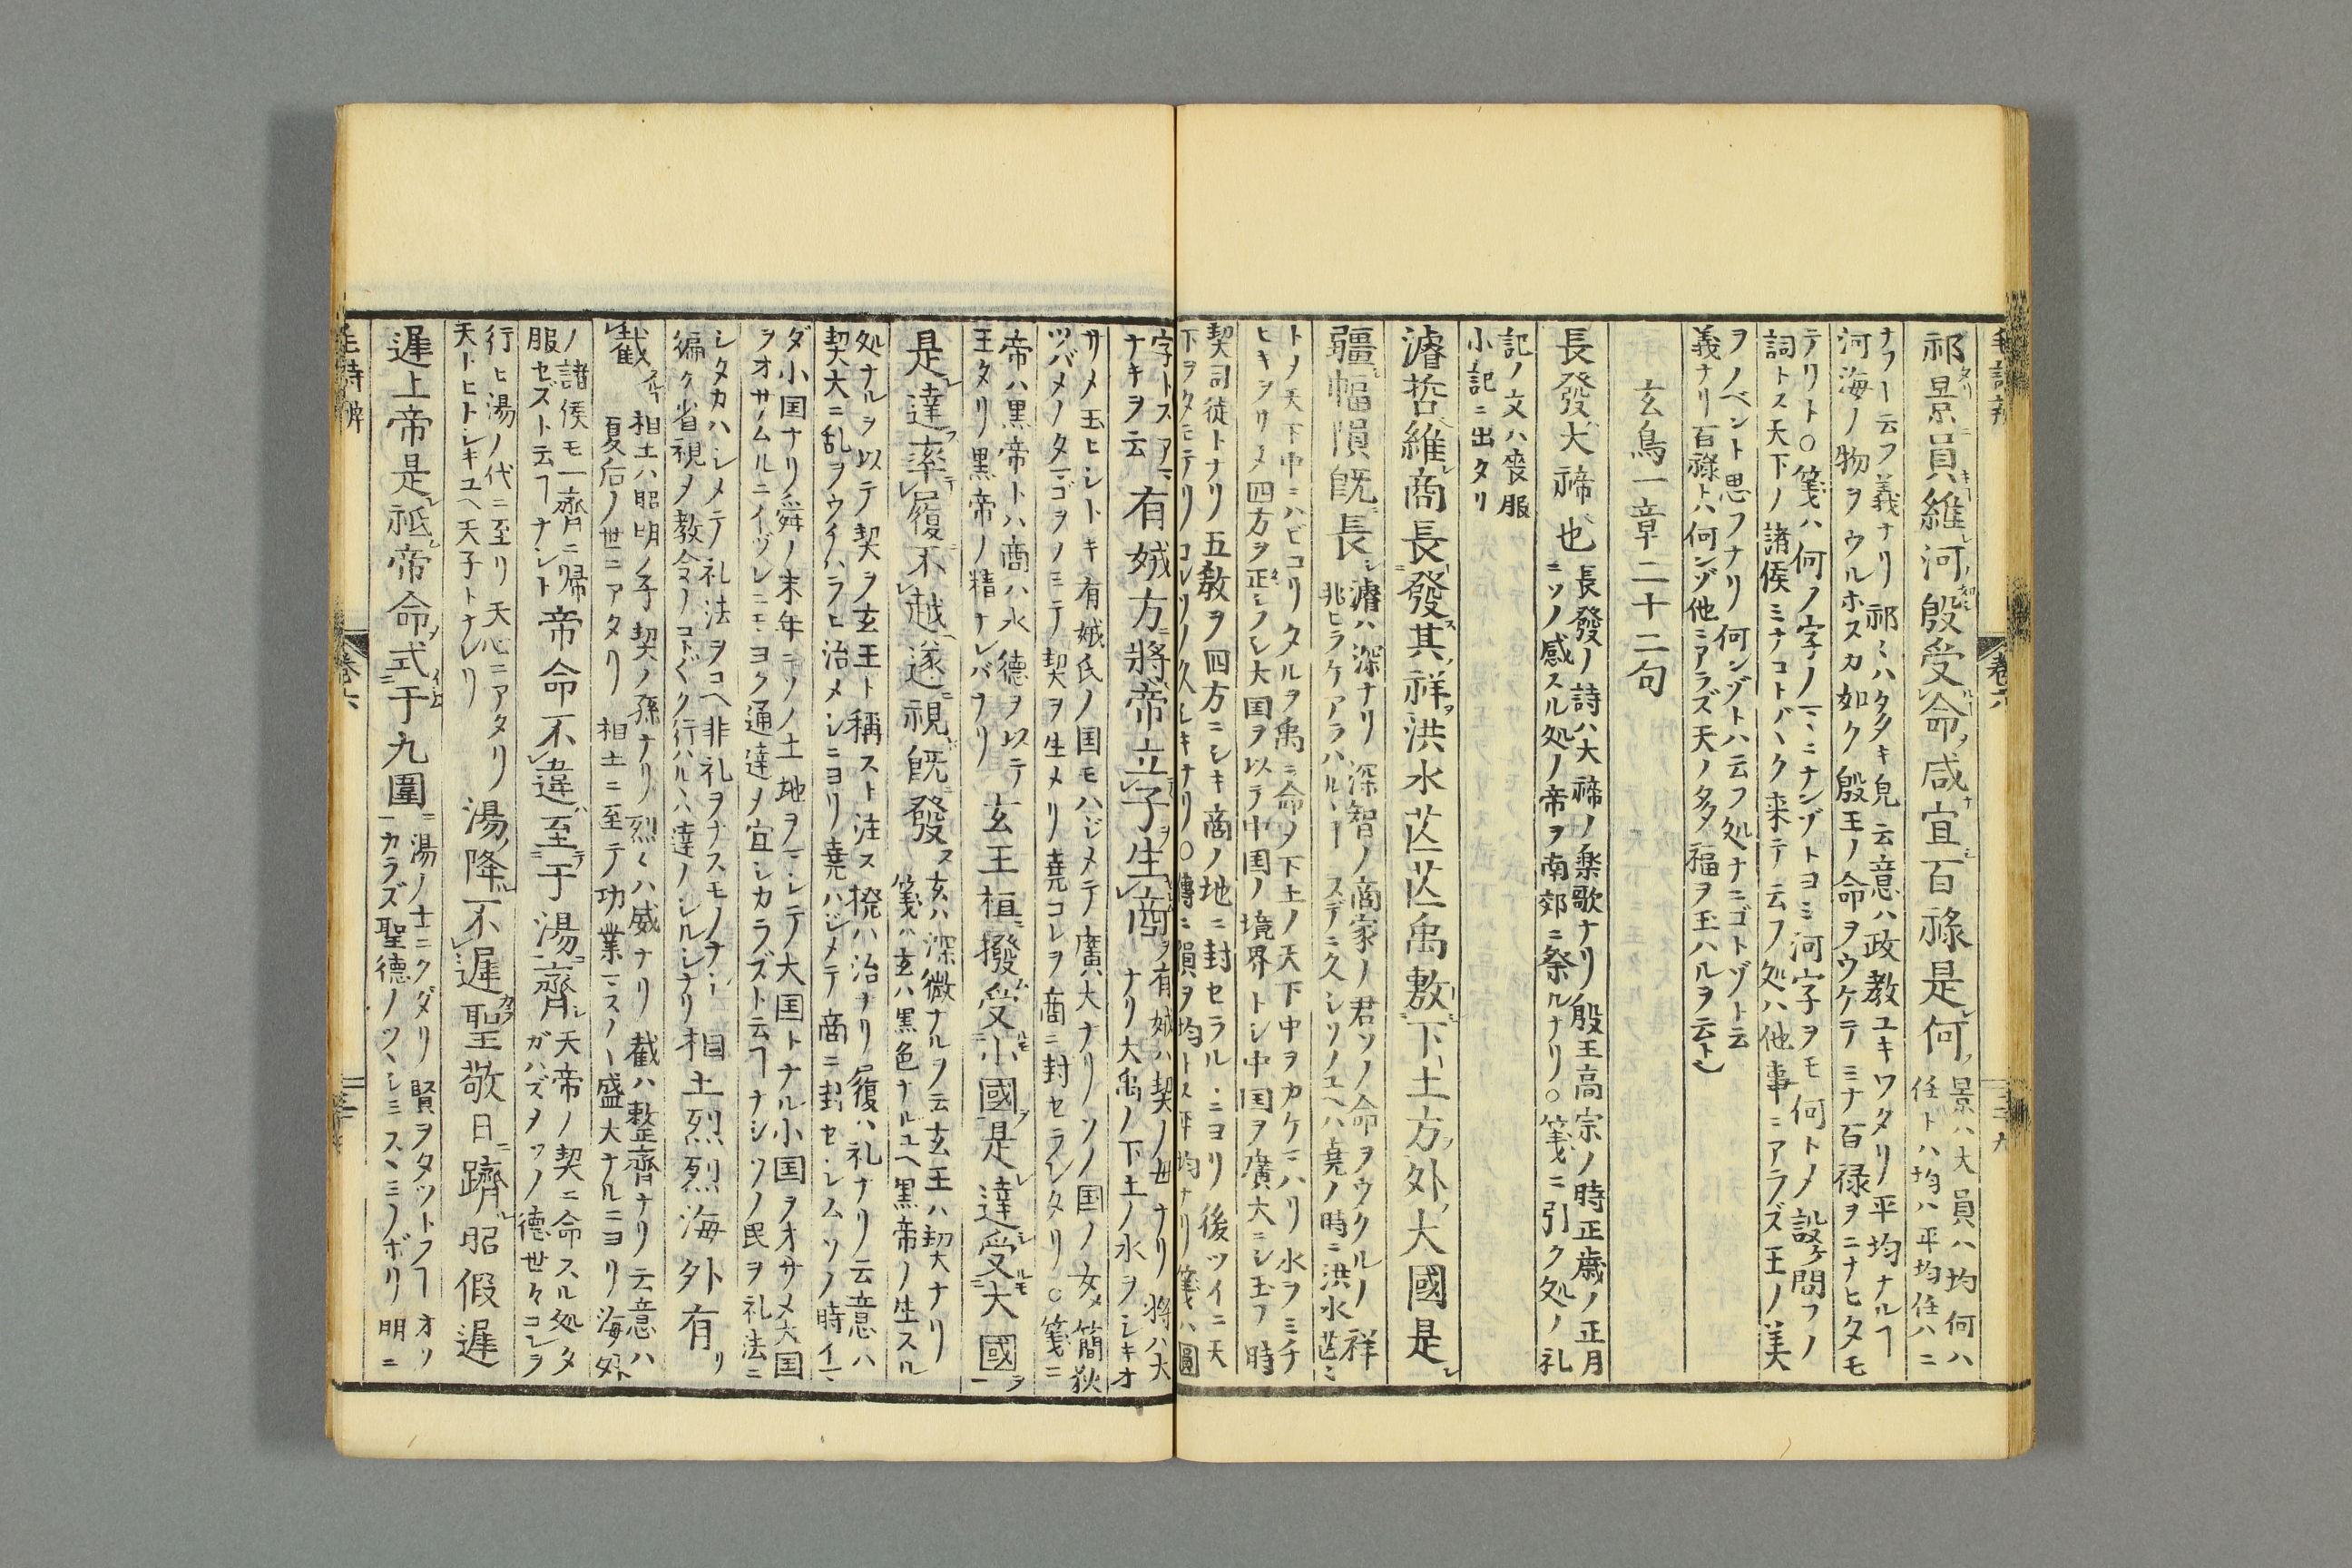 祁景員維河殷受命咸宜百祿是何 景ハ大員ハ均何ハ
任トハ均ハ平均任ハニ
ナフヿ云フ義ナリ祁〻ハ多キ皃云意ハ政教ユキワタリ平均ナルヿ
河海ノ物ヲウルホスカ如ク殷王ノ命ヲウケテミナ百禄ヲニナヒタモ
テリト○箋ハ何ノ字ノ一ニナンゾトヨミ河字ヲモ何トメ設ケ問フノ
詞トス天下ノ諸侯ミナコトバク来テ云フ処ハ他事ニアラズ王ノ美
ヲノベント思フナリ何ンゾトハ云フ処ナニゴトゾト云
義ナリ百祿トハ何ンゾ他ニアラズ天ノ多福ヲ玉ハルヲ云ト
玄鳥一章二十二句
長發大禘也 長發ノ詩ハ大禘ノ楽歌ナリ殷王高宗ノ時正歳ノ正月
ニソノ感スル処ノ帝ヲ南郊ニ祭ルナリ○箋ニ引ク処ノ礼
記ノ文ハ喪服
小記ニ出タリ
濬哲維商長發其祥洪水芒芒禹敷下土方外大國是
疆幅隕既長 濬ハ深ナリ深智ノ商家ノ君ソノ命ヲウクルノ祥
兆ヒラケアラハルヽヿスデニ久シソノユヘハ堯ノ時ニ洪水芒ミ
トノ天下中ニハビコリタルヲ禹ニ命メ下土ノ天下中ヲカケマハリ水ヲミチ
ヒキヲサメ四方ヲ正シフシ大国ヲ以テ中国ノ境界トシ中国ヲ廣大ニシ玉フ時
契司徒トナリ五教ヲ四方ニシキ商ノ地ニ封セラルヽニヨリ後ツイニ天
下ヲタモテリコレソノ久シキナリ○傳ニ隕ヲ均トス平均ナリ箋ハ圓
字トス 有娀方將帝立子生商 有娀ハ契ノ母ナリ將ハ大
ナキヲ云 ナリ大禹ノ下土ノ水ヲシキオ
サメ玉ヒシトキ有娀氏ノ国モハジメテ廣大ナリソノ国ノ女メ簡狄
ツバメノタマゴヲノミテ契ヲ生メリ堯コレヲ商ニ封セラレタリ○箋ニ
帝ハ黒帝トハ商ハ水德ヲ以テ 玄王桓撥受小國是達受大國
王タリ黒帝ノ精ナレバナリ
是達率履不越遂視既發 玄ハ深微ナルヲ云玄王ハ契ナリ
箋ハ玄ハ黒色ナルユヘ黒帝ノ生スル
処ナルヲ以テ契ヲ玄王ト稱スト注ス撥ハ治ナリ履ハ礼ナリ云意ハ
契大ニ乱ヲウチハラヒ治メシニヨリ堯ハジメテ商ニ封セシムソノ時イマ
ダ小国ナリ舜ノ末年ニソノ土地ヲマシテ大国トナル小国ヲオサメ大国
ヲオサムルニイヅレニモヨク通達メ宜シカラズト云ヿナシソノ民ヲ礼法ニ
シタカハシメテ礼法ヲコヘ非礼ヲナスモノナシ 相土烈烈海外有
編ク省視メ教令ノコトゴトク行ハルヽハ達ノシルシナリ
截 相土ハ昭明ノ子契ノ孫ナリ烈〻ハ威ナリ截ハ整齊ナリ云意ハ
夏后ノ世ニアタリ相土ニ至テ功業マスノヽ盛大ナルニヨリ海外
ノ諸侯モ一齊ニ帰 帝命不違至于湯齊 天帝ノ契ニ命スル処タ
服セズト云ヿナシト ガハズメソノ德世々コレヲ
行ヒ湯ノ代ニ至リ天心ニアタリ 湯降不遲聖敬日躋昭假遲
天トヒトシキユヘ天子トナレリ
遲上帝是祗帝命式于九圍 湯ノ士ニクダリ賢ヲタツトフヿオソ
カラズ聖德ノツヽシミスヽミノボリ明ニ
卷六